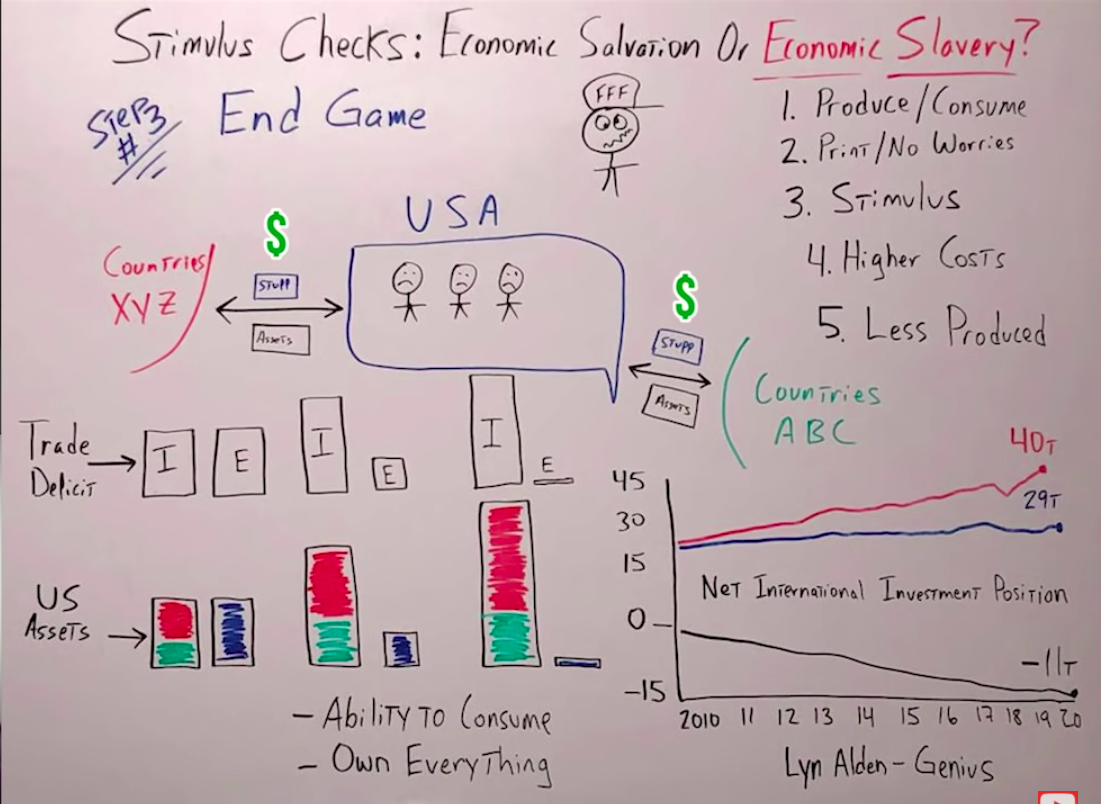 Stimulus Checks: Economic Salvation Or Economic Slavery?
Step
#3
End Game
FFF
1. Produce/Consume
2. Print/No Worries
3. Stimulus
4. Higher Costs
5. Less Produced
USA
$
Countries
XYZ
Stuff
Assets
$
Stuff
Assets
Countries
ABC
Trade
Deficit
I
E
I
E
I
E
US
Assets
- Ability To Consume
- Own Everything
45
30
15
0
-15
40T
29T
Net International Investment Position
-11T
2010 11 12 13 14 15 16 17 18 19 20
Lyn Alden - Genius